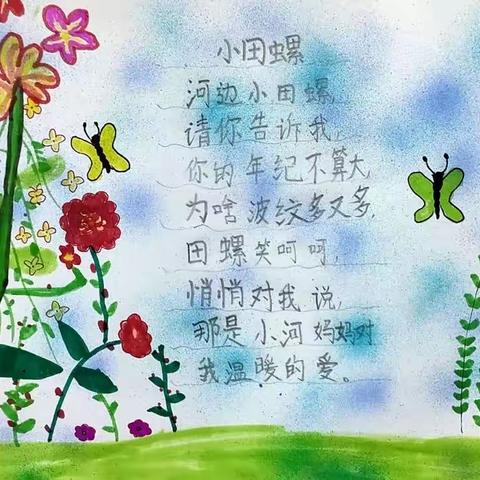 小田螺
河边小田螺,
请你告诉我,
你的年纪不算大,
为啥波纹多又多,
田螺笑呵呵,
悄悄对我说,
那是小河妈妈对
我温暖的爱。